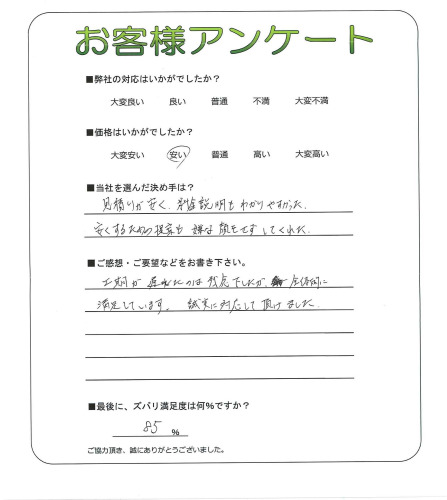 お客様アンケート
■弊社の対応はいかがでしたか？
大変良い 良い 普通 不満 大変不満
■価格はいかがでしたか？
大変安い 安い 普通 高い 大変高い
■当社を選んだ決め手は？
見積りが安く、説明もわかりやすかった。
安くするための提案も 嫌な顔をせずしてくれた。
■ご感想・ご要望などをお書き下さい。
工期が 遅れたのは 残念でしたが、全体的に
満足しています。 誠実に対応して頂けました。
■最後に、ズバリ満足度は何%ですか？
85 %
ご協力頂き、誠にありがとうございました。